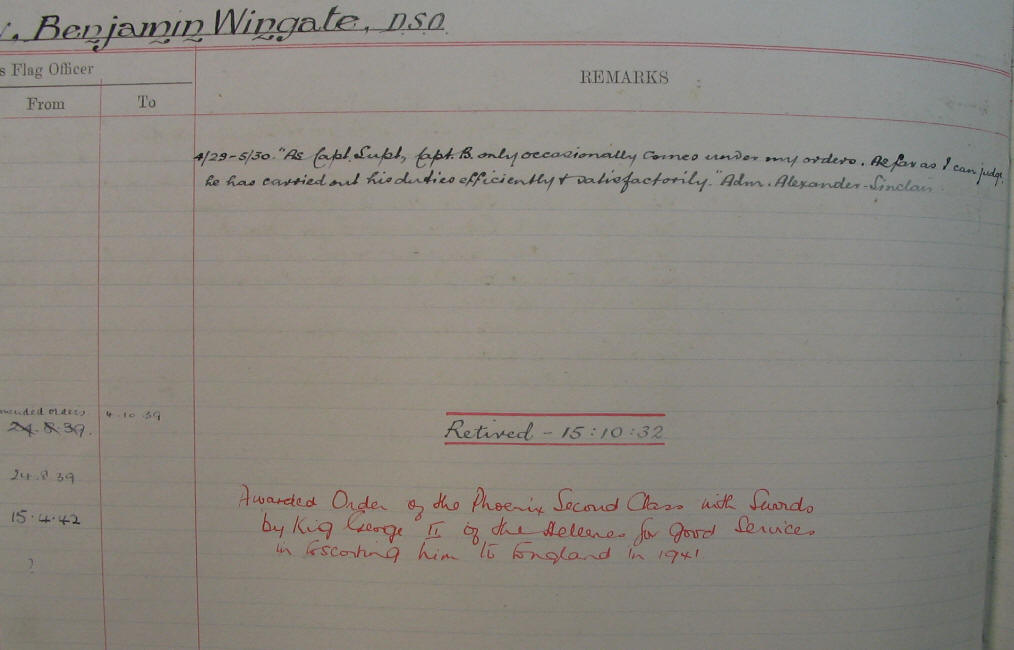 . Benjamin Wingate, D.S.O.
s Flag Officer
REMARKS
From
To
4/29-5/30. "As Capt. Supt, Capt. B. only occasionally comes under my orders. As far as I can judge,
he has carried out his duties efficiently & satisfactorily." Adm. Alexander-Sinclair
mended orders. 4.10.39
24.8.39.
Retired - 15:10:32
24.8.39
Awarded Order of the Phoenix Second Class with Swords
15.4.42
by King George II of the Hellenes for good Services
in Escorting him to England in 1941
?